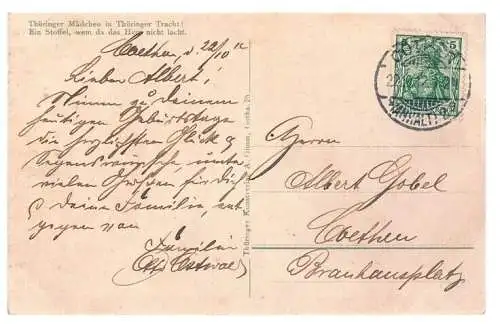 Thüringer Mädchen in Thüringer Tracht!
Ein Stoffel, wem da das Herz nicht lacht.
Coethen, d. 22/10 12
Lieben Albert!
Nimm zu Deinem
heutigen Geburtstage
die herzlichsten Glück &
Segenswünsche, unter
vielen Grüßen für Dich
& Deine Familie, ent
gegen von
Familie
Otto Ostwald
Thüringer Kunstverlag
Gotha
5
CÖTHEN
(ANHALT)
Herrn
Albert Göbel
Coethen
Brauhausplatz